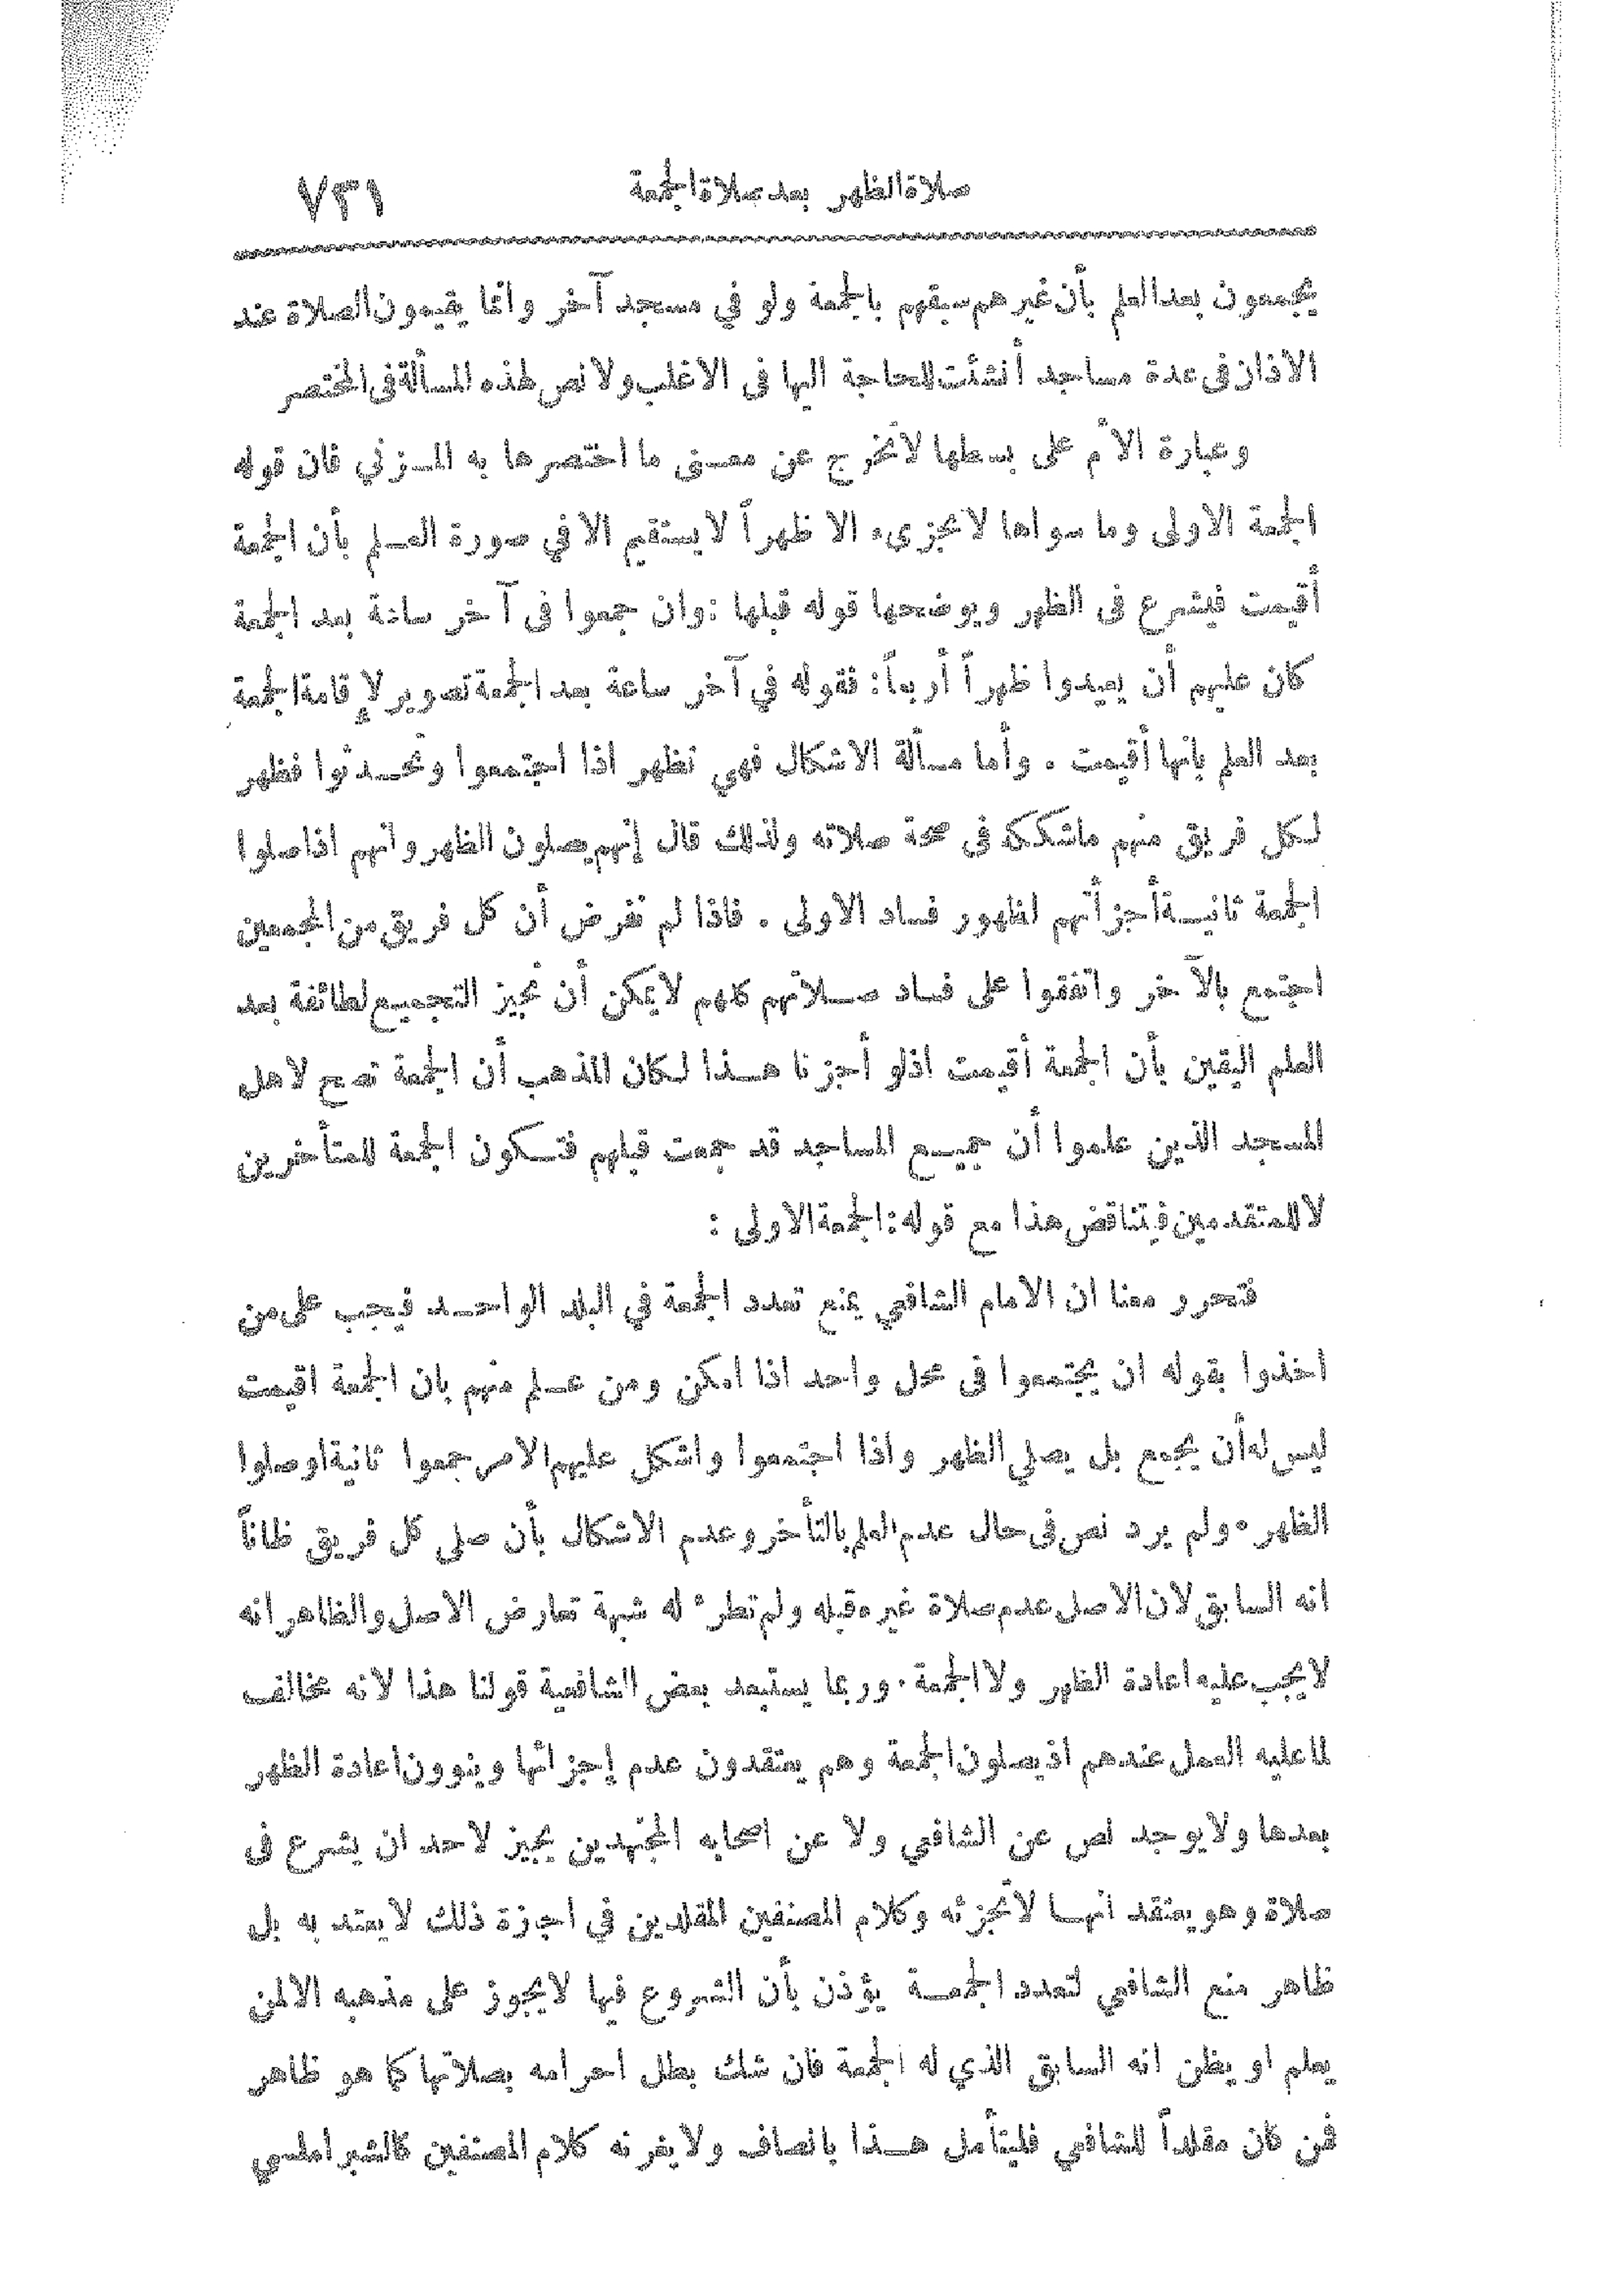 صلاة الظهر بعد صلاة الجمعة ٧٣١
يجمعون بعد العلم بأن غيرهم سبقهم بالجمعة ولو في مسجد آخر وانما يقيمون الصلاة عند
الاذان في عدة مساجد أنشئت للحاجة اليها فى الاغلب ولا نص لهذه المسألة فى المختصر
وعبارة الأم على بسطها لا تخرج عن معنى ما اختصرها به المزني فان قوله
الجمعة الاولى وما سواها لا يجزىء الا ظهراً لا يستقيم الا في صورة العلم بأن الجمعة
أقيمت فيشرع فى الظهر ويوضحها قوله قبلها : وان جمعوا فى آخر ساعة بعد الجمعة
كان عليهم أن يعيدوا ظهراً أربعاً : فقوله في آخر ساعة بعد الجمعة تصوير لإقامة الجمعة
بعد العلم بانها أقيمت . وأما مسألة الاشكال فهي تظهر اذا اجتمعوا وتحدثوا فظهر
لكل فريق منهم ماشككه فى صحة صلاته ولذلك قال إنهم يصلون الظهر وانهم اذا صلوا
الجمعة ثانية أجزأتهم لظهور فساد الاولى . فاذا لم نفرض أن كل فريق من المجمعين
اجتمع بالآخر واتفقوا على فساد صلاتهم كلهم لا يمكن أن نجيز التجميع لطائفة بعد
العلم اليقين بأن الجمعة أقيمت اذ لو أجزنا هذا لكان المذهب أن الجمعة تصح لاهل
المسجد الذين علموا أن جميع المساجد قد جمعت قبلهم فتكون الجمعة للمتأخرين
لا للمتقدمين فيتناقض هذا مع قوله : الجمعة الاولى :
فتحرر معنا ان الامام الشافعي يمنع تعدد الجمعة في البلد الواحد فيجب على من
اخذوا بقوله ان يجتمعوا فى محل واحد اذا امكن ومن علم منهم بان الجمعة اقيمت
ليس له أن يجمع بل يصلي الظهر واذا اجتمعوا واشكل عليهم الامر جمعوا ثانية او صلوا
الظهر . ولم يرد نص فى حال عدم العلم بالتأخر وعدم الاشكال بأن صلى كل فريق ظاناً
انه السابق لان الاصل عدم صلاة غيره قبله ولم تطرء له شبهة تعارض الاصل والظاهر انه
لا يجب عليه اعادة الظهر ولا الجمعة . وربما يستبعد بعض الشافعية قولنا هذا لانه مخالف
لما عليه العمل عندهم اذ يصلون الجمعة وهم يعتقدون عدم إجزائها وينوون اعادة الظهر
بعدها ولا يوجد نص عن الشافعي ولا عن اصحابه المجتهدين يجيز لاحد ان يشرع فى
صلاة وهو يعتقد انها لا تجزئه وكلام المصنفين المقلدين في اجزة ذلك لا يعتد به بل
ظاهر منع الشافعي لتعدد الجمعة يؤذن بأن الشروع فيها لا يجوز على مذهبه الا لمن
يعلم او يظن انه السابق الذي له الجمعة فان شك بطل احرامه بصلاتها كما هو ظاهر
فمن كان مقلداً للشافعي فليتأمل هذا بانصاف ولا يغرنه كلام المصنفين كالشبراملسي